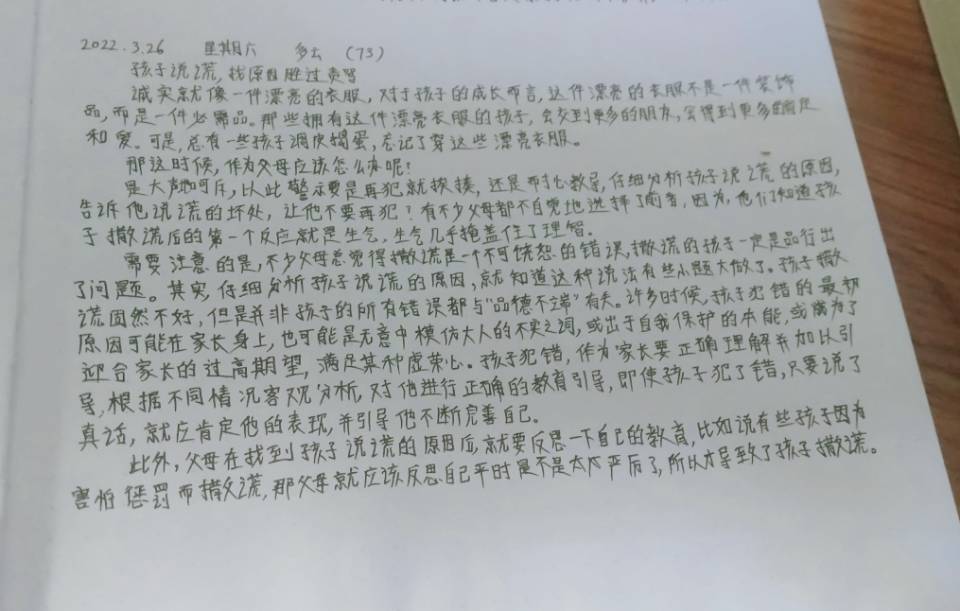 2022.3.26 星期六 多云 (73)
孩子说谎,找原因胜过责骂
诚实就像一件漂亮的衣服,对于孩子的成长而言,这件漂亮的衣服不是一件装饰
品,而是一件必需品。那些拥有这件漂亮衣服的孩子,会交到更多的朋友,会得到更多的满足
和爱。可是,总有一些孩子调皮捣蛋,忘记了穿这些漂亮衣服。
那这时候,作为父母应该怎么办呢?
是大声呵斥,以此警示要是再犯就挨揍,还是耐心教导,仔细分析孩子说谎的原因,
告诉他说谎的坏处,让他不要再犯?有不少父母都不自觉地选择了前者,因为,他们知道孩
子撒谎后的第一个反应就是生气,生气几乎掩盖住了理智。
需要注意的是,不少父母总觉得撒谎是一个不可饶恕的错误,撒谎的孩子一定是品行出
了问题。其实,仔细分析孩子说谎的原因,就知道这种说法有些小题大做了。孩子撒
谎固然不好,但是并非孩子的所有错误都与"品德不端"有关。许多时候,孩子犯错的最初
原因可能在家长身上,也可能是无意中模仿大人的不实之词,或出于自我保护的本能,或为了
迎合家长的过高期望,满足某种虚荣心。孩子犯错,作为家长要正确理解并加以引
导,根据不同情况客观分析,对他进行正确的教育引导,即使孩子犯了错,只要说了
真话,就应肯定他的表现,并引导他不断完善自己。
此外,父母在找到孩子说谎的原因后,就要反思一下自己的教育,比如说有些孩子因为
害怕惩罚而撒谎,那父母就应该反思自己平时是不是太严厉了,所以才导致了孩子撒谎。